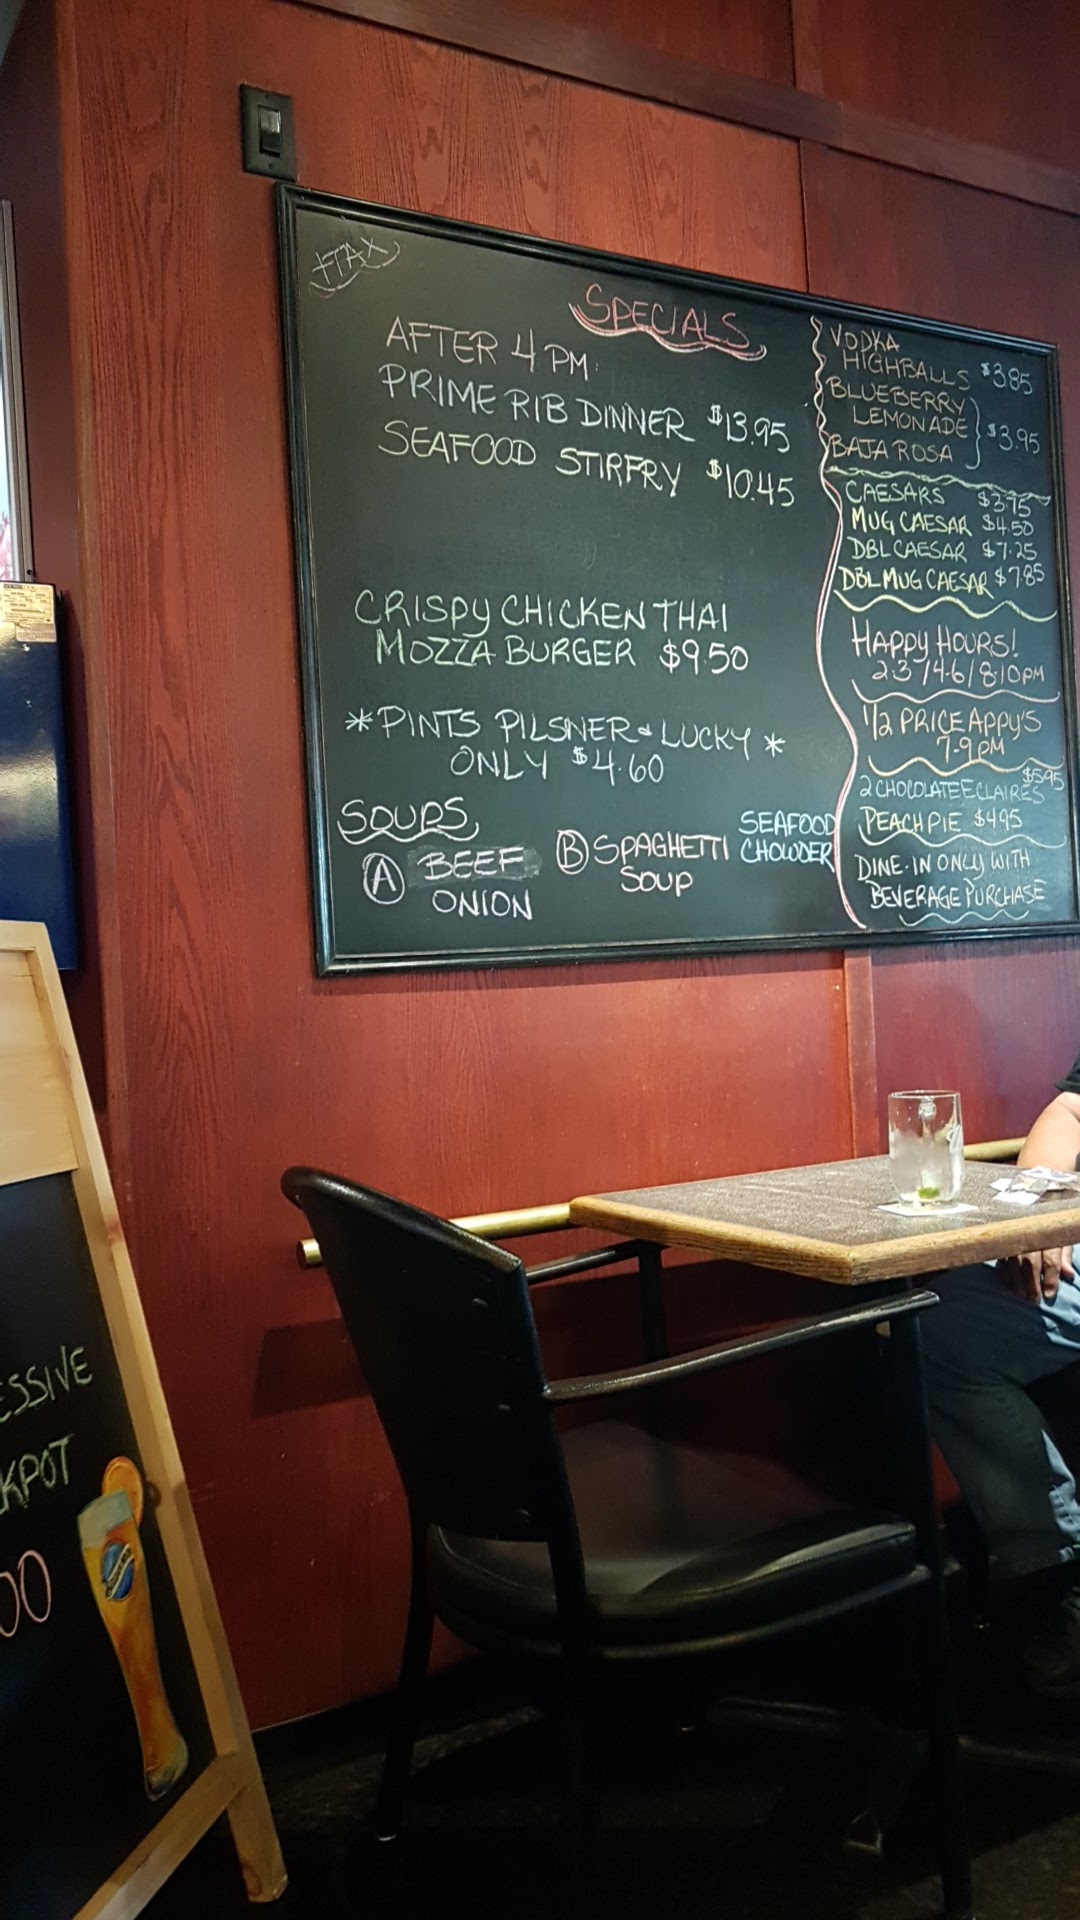 +TAX
SPECIALS
AFTER 4 PM:
PRIME RIB DINNER $13.95
SEAFOOD STIRFRY $10.45
CRISPY CHICKEN THAI
MOZZA BURGER $9.50
*PINTS PILSNER & LUCKY *
ONLY $4.60
SOUPS
A BEEF
ONION
B SPAGHETTI
SOUP
SEAFOOD
CHOWDER
VODKA
HIGHBALLS $3.85
BLUEBERRY
LEMONADE
BAJA ROSA } $3.95
CAESARS $3.75
MUG CAESAR $4.50
DBL CAESAR $7.25
DBL MUG CAESAR $7.85
HAPPY HOURS!
2-3 / 4-6 / 8-10PM
1/2 PRICE APPY'S
7-9PM
2 CHOCOLATE ECLAIRES $5.95
PEACH PIE $4.95
DINE-IN ONLY WITH
BEVERAGE PURCHASE
ESSIVE
KPOT
00